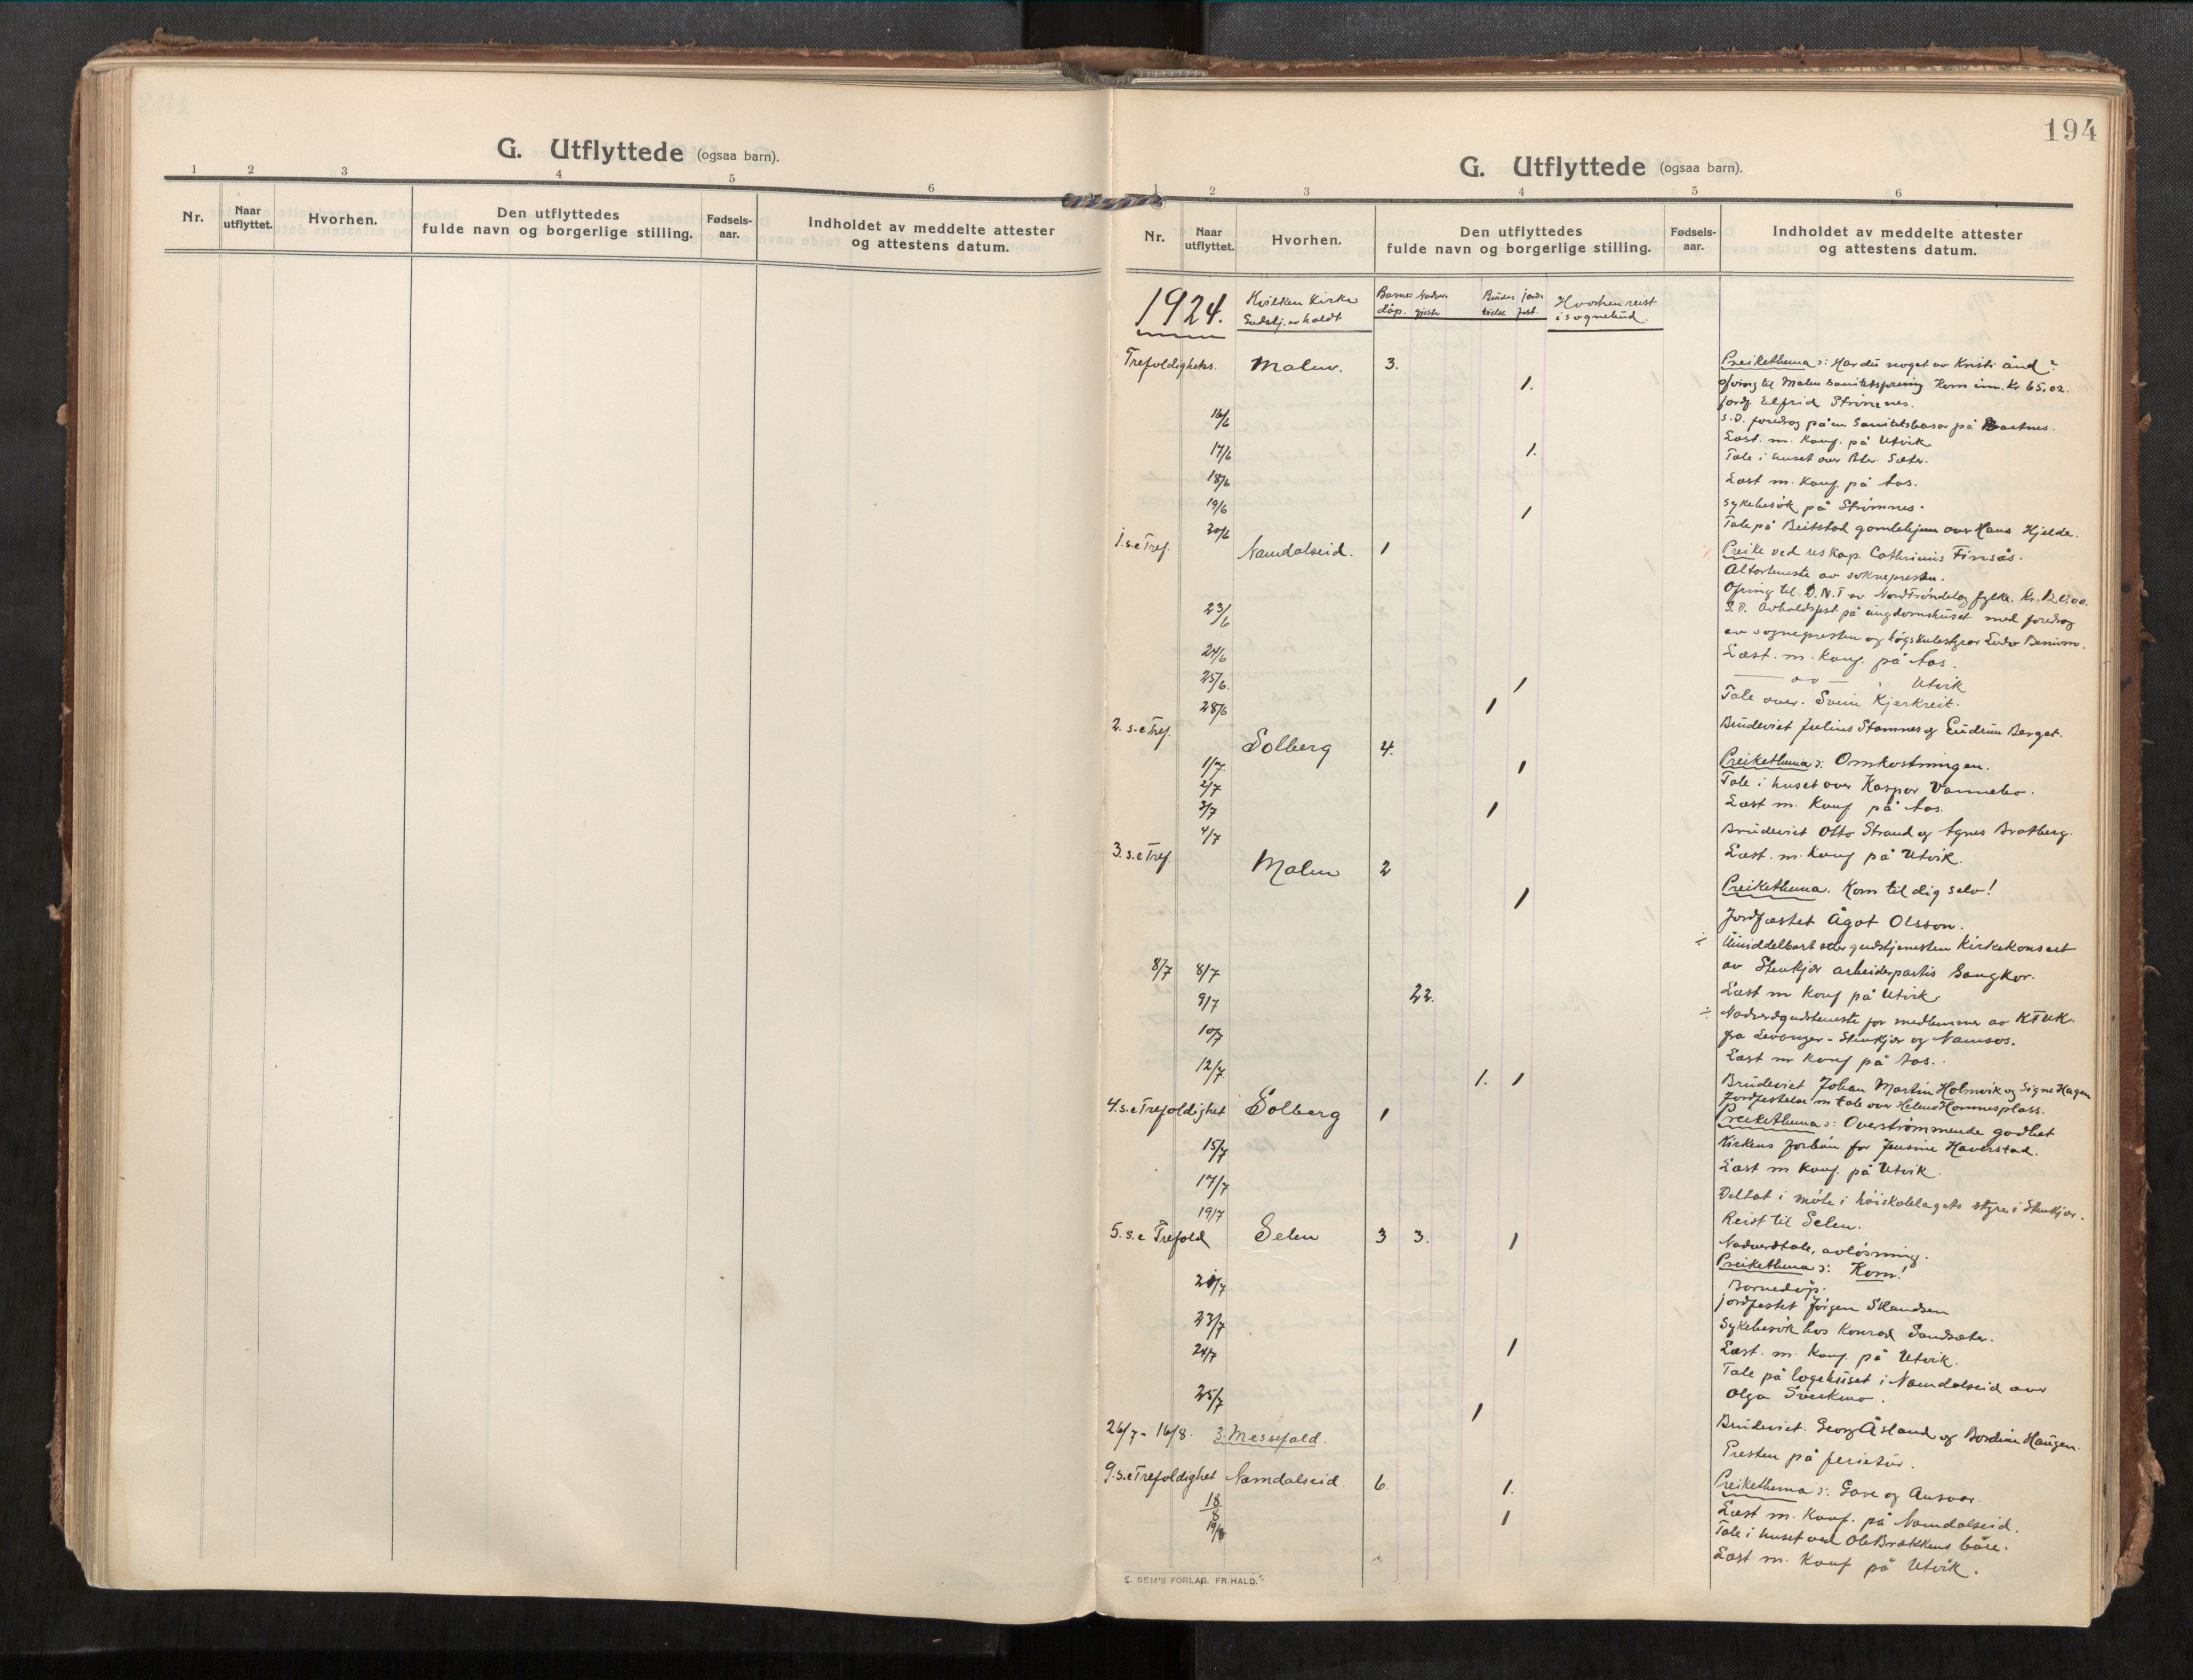 G. Utflyttede (ogsaa barn).
1 2 3 4 5 6
Nr. Naar utflyttet. Hvorhen. Den utflyttedes fulde navn og borgerlige stilling. Fødsels-aar. Indholdet av meddelte attester og attestens datum.
194
G. Utflyttede (ogsaa barn).
1 2 3 4 5 6
Nr. Naar utflyttet. Hvorhen. Den utflyttedes fulde navn og borgerlige stilling. Fødsels-aar. Indholdet av meddelte attester og attestens datum.
1924. Hvilken kirke Gudstj. er holdt Barne dåp. Nadver gjester Brudevielse Jordfest. Hvorhen reist i sognebud.
Trefoldighets. Malm. 3. Preikethema: Har du noget av Kristi ånd?
1. Ofring til Malm sanitetsforening Kom inn. Kr 65,02.
Jordf. Elfrid Strømnes.
16/6 S.D. foredrag på en Sanitetsbasar på Bartnes.
Læst. m. Konf. på Utvik
17/6 1. Tale i huset over Sæter.
18/6 Læst m. Konf. på Aas.
19/6 Sykebesök på Strömnes.
20/6 1 Tale på Beitstad gamlehjem over Hans Hjelde.
1. s. e Tref. Namdalseid. 1 Preike ved res kap. Cathrinus Finsås.
Altertjeneste av sokneprestn.
Ofring til D.N.T av NordTröndelag fylke. Kr. 120.00.
23/6 S.D. Avholdsfest på ungdomshuset med foredrag
av sognepresten og
24/6 Læst. m. Konf. på Aas.
25/6. — " — Utvik
1 Tale over. Svein Kjerkreit.
28/6 1 Brudeviet Julius Stamnes og Gudrun Berget.
2. s. e Tref. Solberg 4. Preikethema: Omkostningen.
1/7. 1 Tale i huset over Kaspar Vannebo.
2/7 Læst m. Konf på Aas.
3/7 1 Brudeviet Otto Strand og Agnes Bratberg.
4/7 Læst. m. Konf på Utvik.
3. s. e Tref. Malm 2 Preikethema. Kom til dig selv!
1 Jordfæstet Ågot Olsson.
÷ Umiddelbart etter gudstjenesten Kirkekonsert
av Stenkjær arbeiderpartis Sangkor.
8/7 8/7 Læst m Konf på Utvik.
9/7 22. ÷ Nadverdgudstjeneste for medlemmer av KFUK.
fra Levanger - Stenkjær og Namsos.
10/7 Læst m Konf på Aas.
12/7. 1. 1 Brudeviet Johan Martin Holmvik og Signe Hagen
Jordfestelse m tale over Helene Hammesplass.
4. s. e Trefoldighet Solberg 1 Preikethema: Overströmmende godhet
Kirkens forbön for Jensine Haverstad.
15/7 Læst m Konf. på Utvik.
17/7 Deltat i möte i höiskolelagets styre i Stenkjær.
19/7 Reist til Selen.
5. s. e Trefold Selen 3 3. 1 Nadverdtale, avlösning.
Preikethema: Kom!
Barnedåp.
Jordfestet Jörgen
21/7 Sykebesök hos Konrad Sandsæter.
23/7 Læst. m. Konf. på Utvik.
24/7 1 Tale på logehuset i Namdalseid over
Olga
25/7 1 Brudeviet. Georg Åsland og Bordine Haugen.
26/7 - 16/8. 3. Messefald. Presten på ferietur.
9. s. e Trefoldighet Namdalseid 6. 1. Preikethema: Gave og Ansvar.
18/8 Læst m. Konf. på Namdalseid.
1 Tale i huset ved Ole Brækkens båre.
19/8 Læst m. Konf på Utvik.
E. SEM'S FORLAG. FR.HALD.